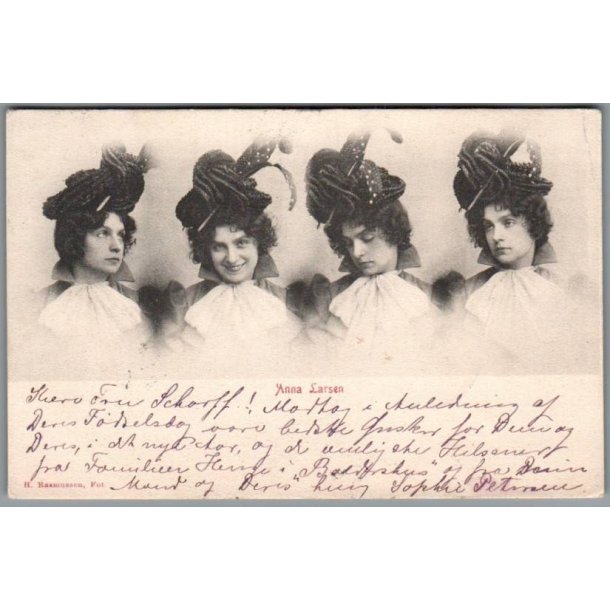 Anna Larsen
Kære Fru Schorff! Modtag i Anledning af
Deres Fødselsdag vore bedste Ønsker for Dem og
Deres, i det nye Aar, og de venligste Hilsener
fra Familien Henne i og fra Deres
H. Rasmussen, Fot.
Mand og Deres heng Sophie Petersen